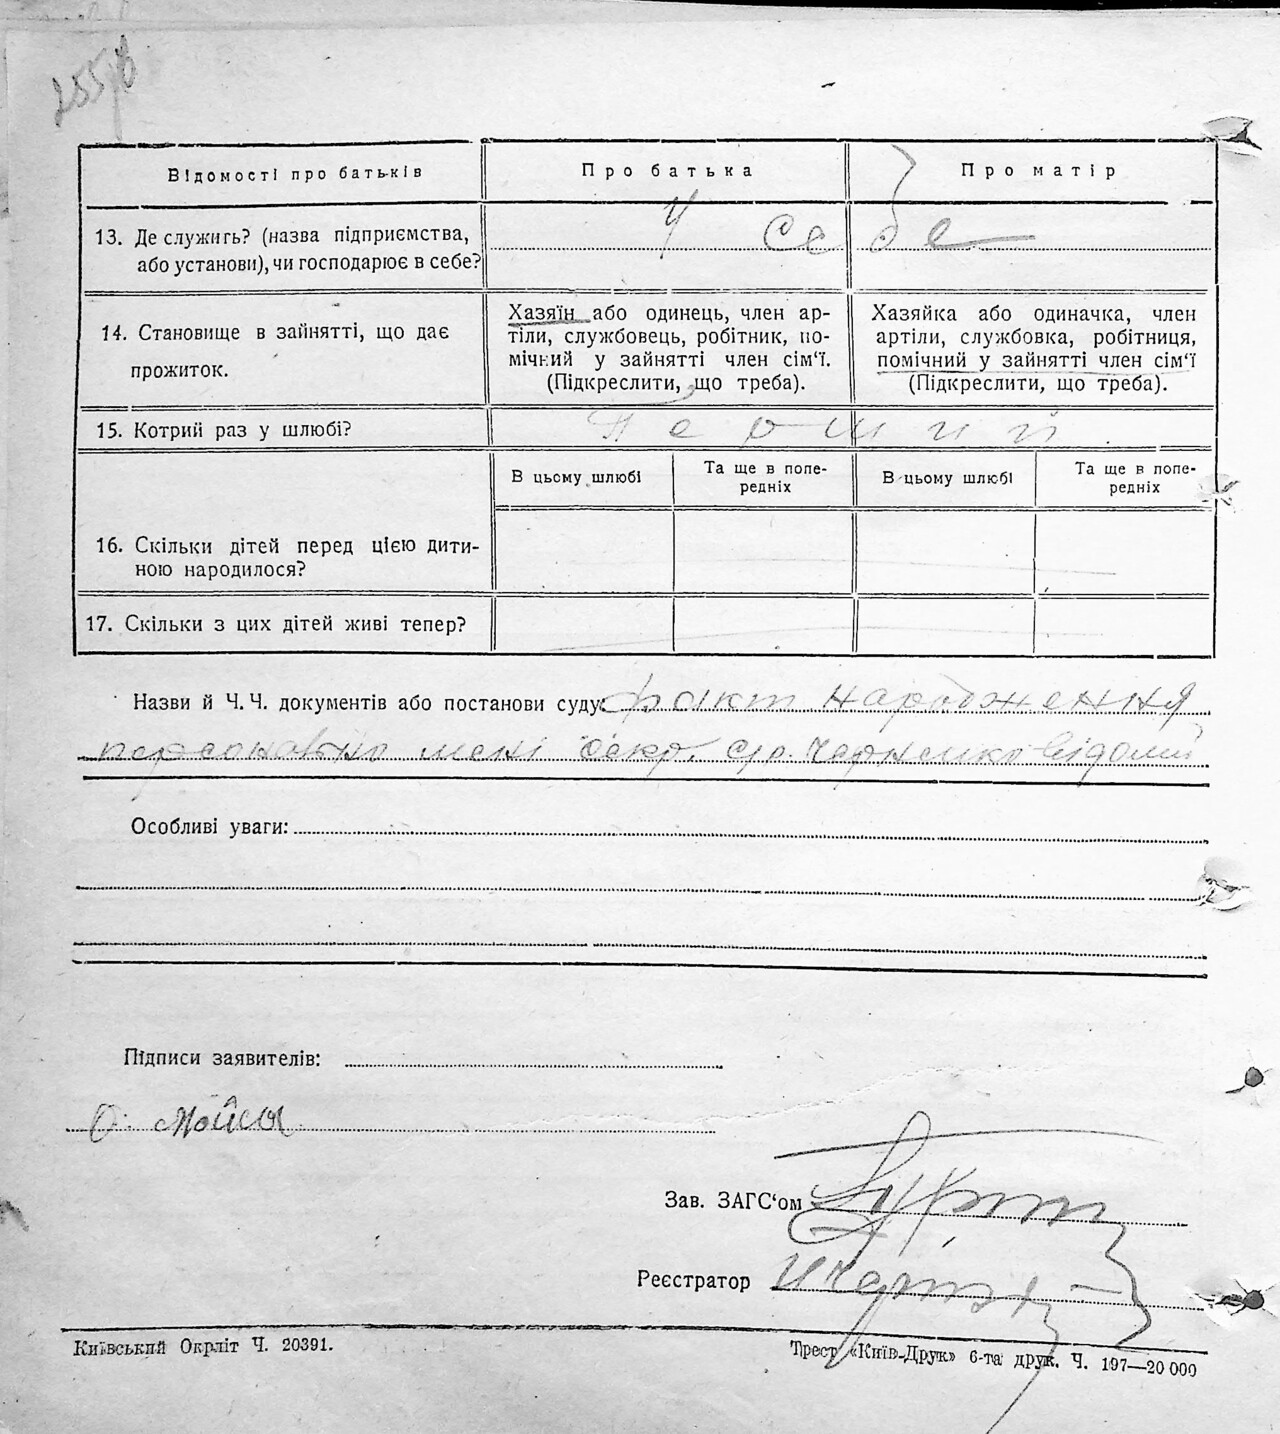 255
Відомості про батьків
Про батька
Про матір
13. Де служить? (назва підприємства,
або установи), чи господарює в себе?
У себе
14. Становище в зайнятті, що дає
прожиток.
Хазяїн або одинець, член ар-
тіли, службовець, робітник, по-
мічний у зайнятті член сім‘ї.
(Підкреслити, що треба).
Хазяйка або одиначка, член
артіли, службовка, робітниця,
помічний у зайнятті член сім‘ї
(Підкреслити, що треба).
15. Котрий раз у шлюбі?
Перший
В цьому шлюбі
Та ще в попе-
редніх
В цьому шлюбі
Та ще в попе-
редніх
16. Скільки дітей перед цією дити-
ною народилося?
17. Скільки з цих дітей живі тепер?
Назви й Ч. Ч. документів або постанови суду: факт народження
персонально мені секр. с/р. Черненко відомий
Особливі уваги:
Підписи заявителів:
О.
Зав. ЗАГС‘ом
Реєстратор
Київський Окрліт Ч. 20391.
Трест «Київ-Друк» 6-та друк. Ч. 197—20 000